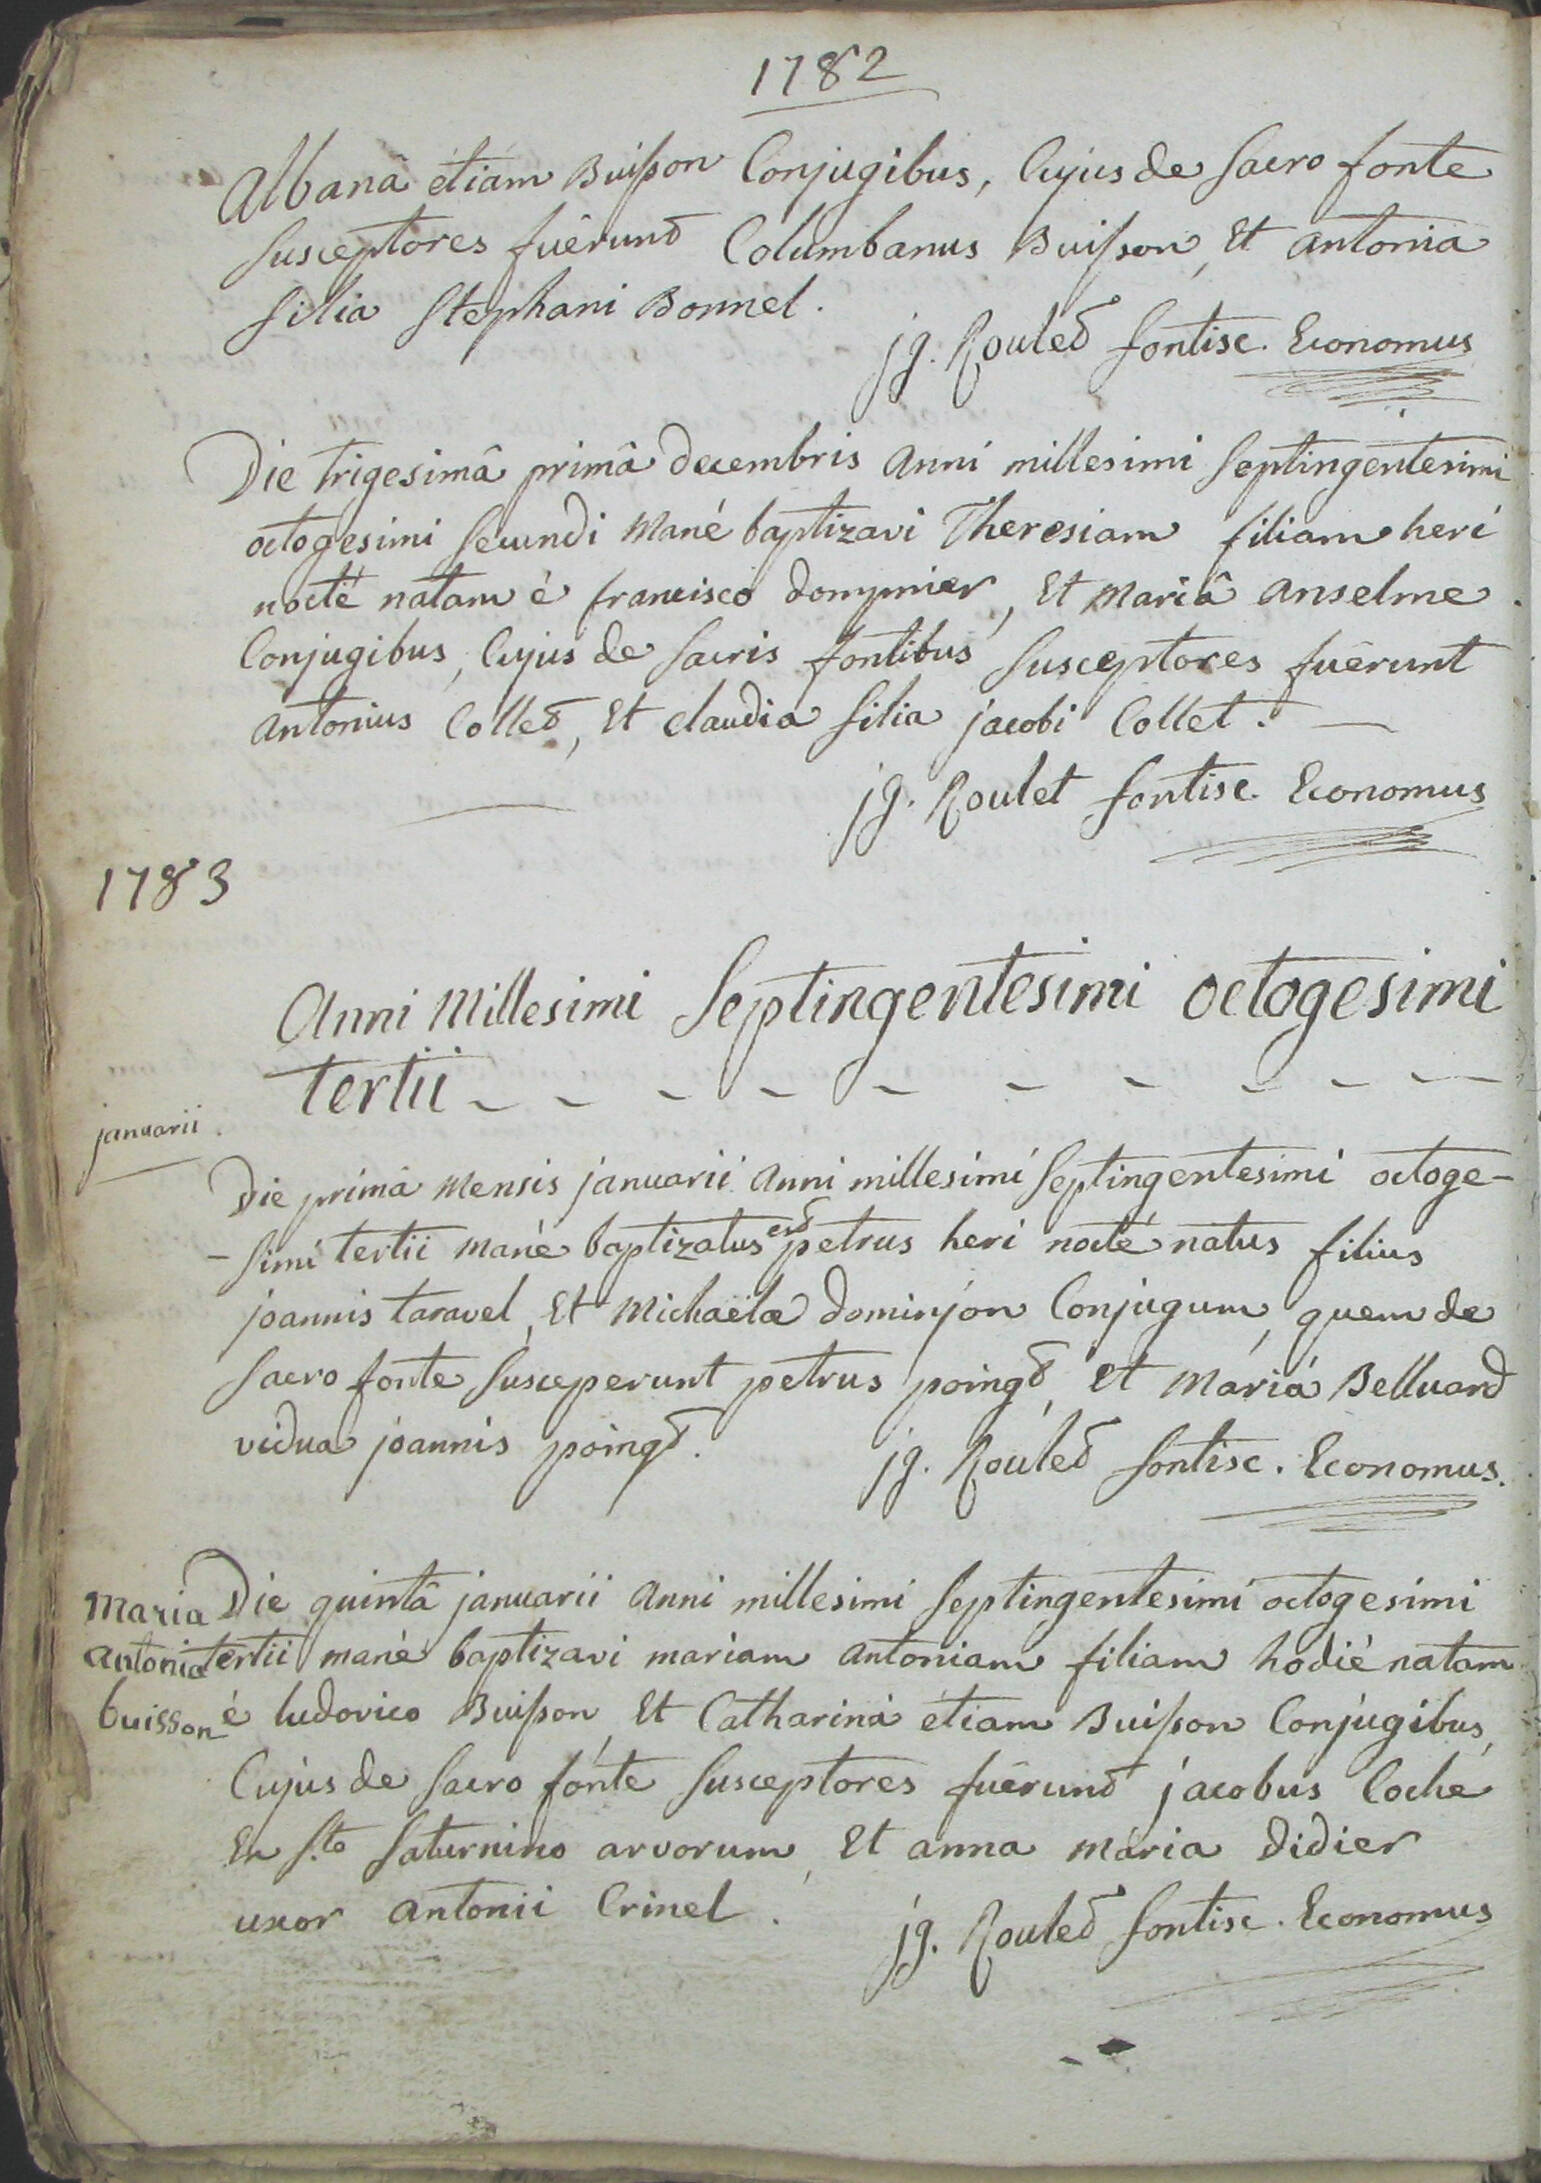 1782
Albanâ etiam Buisson Conjugibus, Cujus de sacro fonte
susceptores fuêrunt Columbanus Buisson, Et antonia
filia stephani Bonnel.
jg. Roulet fontisc. Economus
Die trigesimâ primâ decembris anni millesimi septingentesimi
octogesimi secundi mané baptizavi Theresiam filiam heri
nocté natam é francisco dompnier, Et mariâ anselme
Conjugibus, Cujus de sacris fontibus susceptores fuêrunt
antonius Collet, Et claudia filia jacobi Collet. —
jg. Roulet fontisc. Economus
1783
Anni Millesimi Septingentesimi octogesimi
tertii - - - - - - - - - -
januarii.
Die primâ mensis januarii anni millesimi septingentesimi octoge-
-simi tertii mané baptizatus est petrus heri nocté natus filius
joannis taravel, Et Michaëlæ dominjon Conjugum, quem de
sacro fonte susceperunt petrus poingt, Et maria Belluard
vidua joannis poingt.
jg. Roulet fontisc. Economus.
maria
antonia
buisson
Die quintâ januarii anni millesimi septingentesimi octogesimi
tertii mané baptizavi mariam antoniam filiam hodié natam
é ludovico Buisson, Et Catharinâ etiam Buisson Conjugibus,
Cujus de sacro fonte susceptores fuêrunt jacobus Coche
Ex sto. saturnino arvorum, Et anna maria didier
uxor antonii Crinel.
jg. Roulet fontisc. Economus